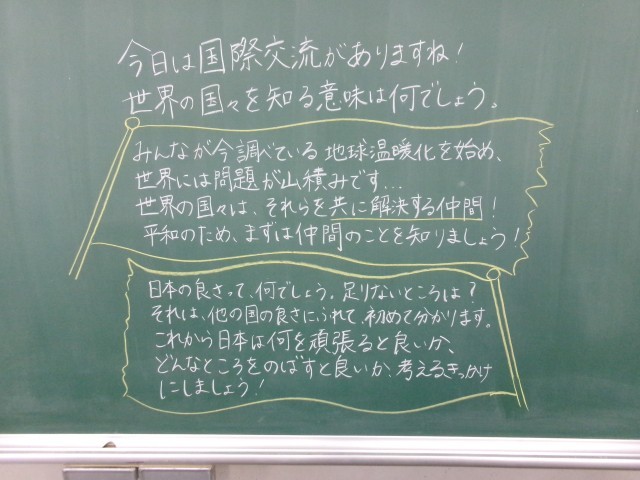 今日は国際交流がありますね!
世界の国々を知る意味は何でしょう。
みんなが今調べている地球温暖化を始め、
世界には問題が山積みです...
世界の国々は、それらを共に解決する仲間!
平和のため、まずは仲間のことを知りましょう!
日本の良さって、何でしょう。足りないところは?
それは、他の国の良さにふれて、初めて分かります。
これから日本は何を頑張ると良いか、
どんなところをのばすと良いか、考えるきっかけ
にしましょう!